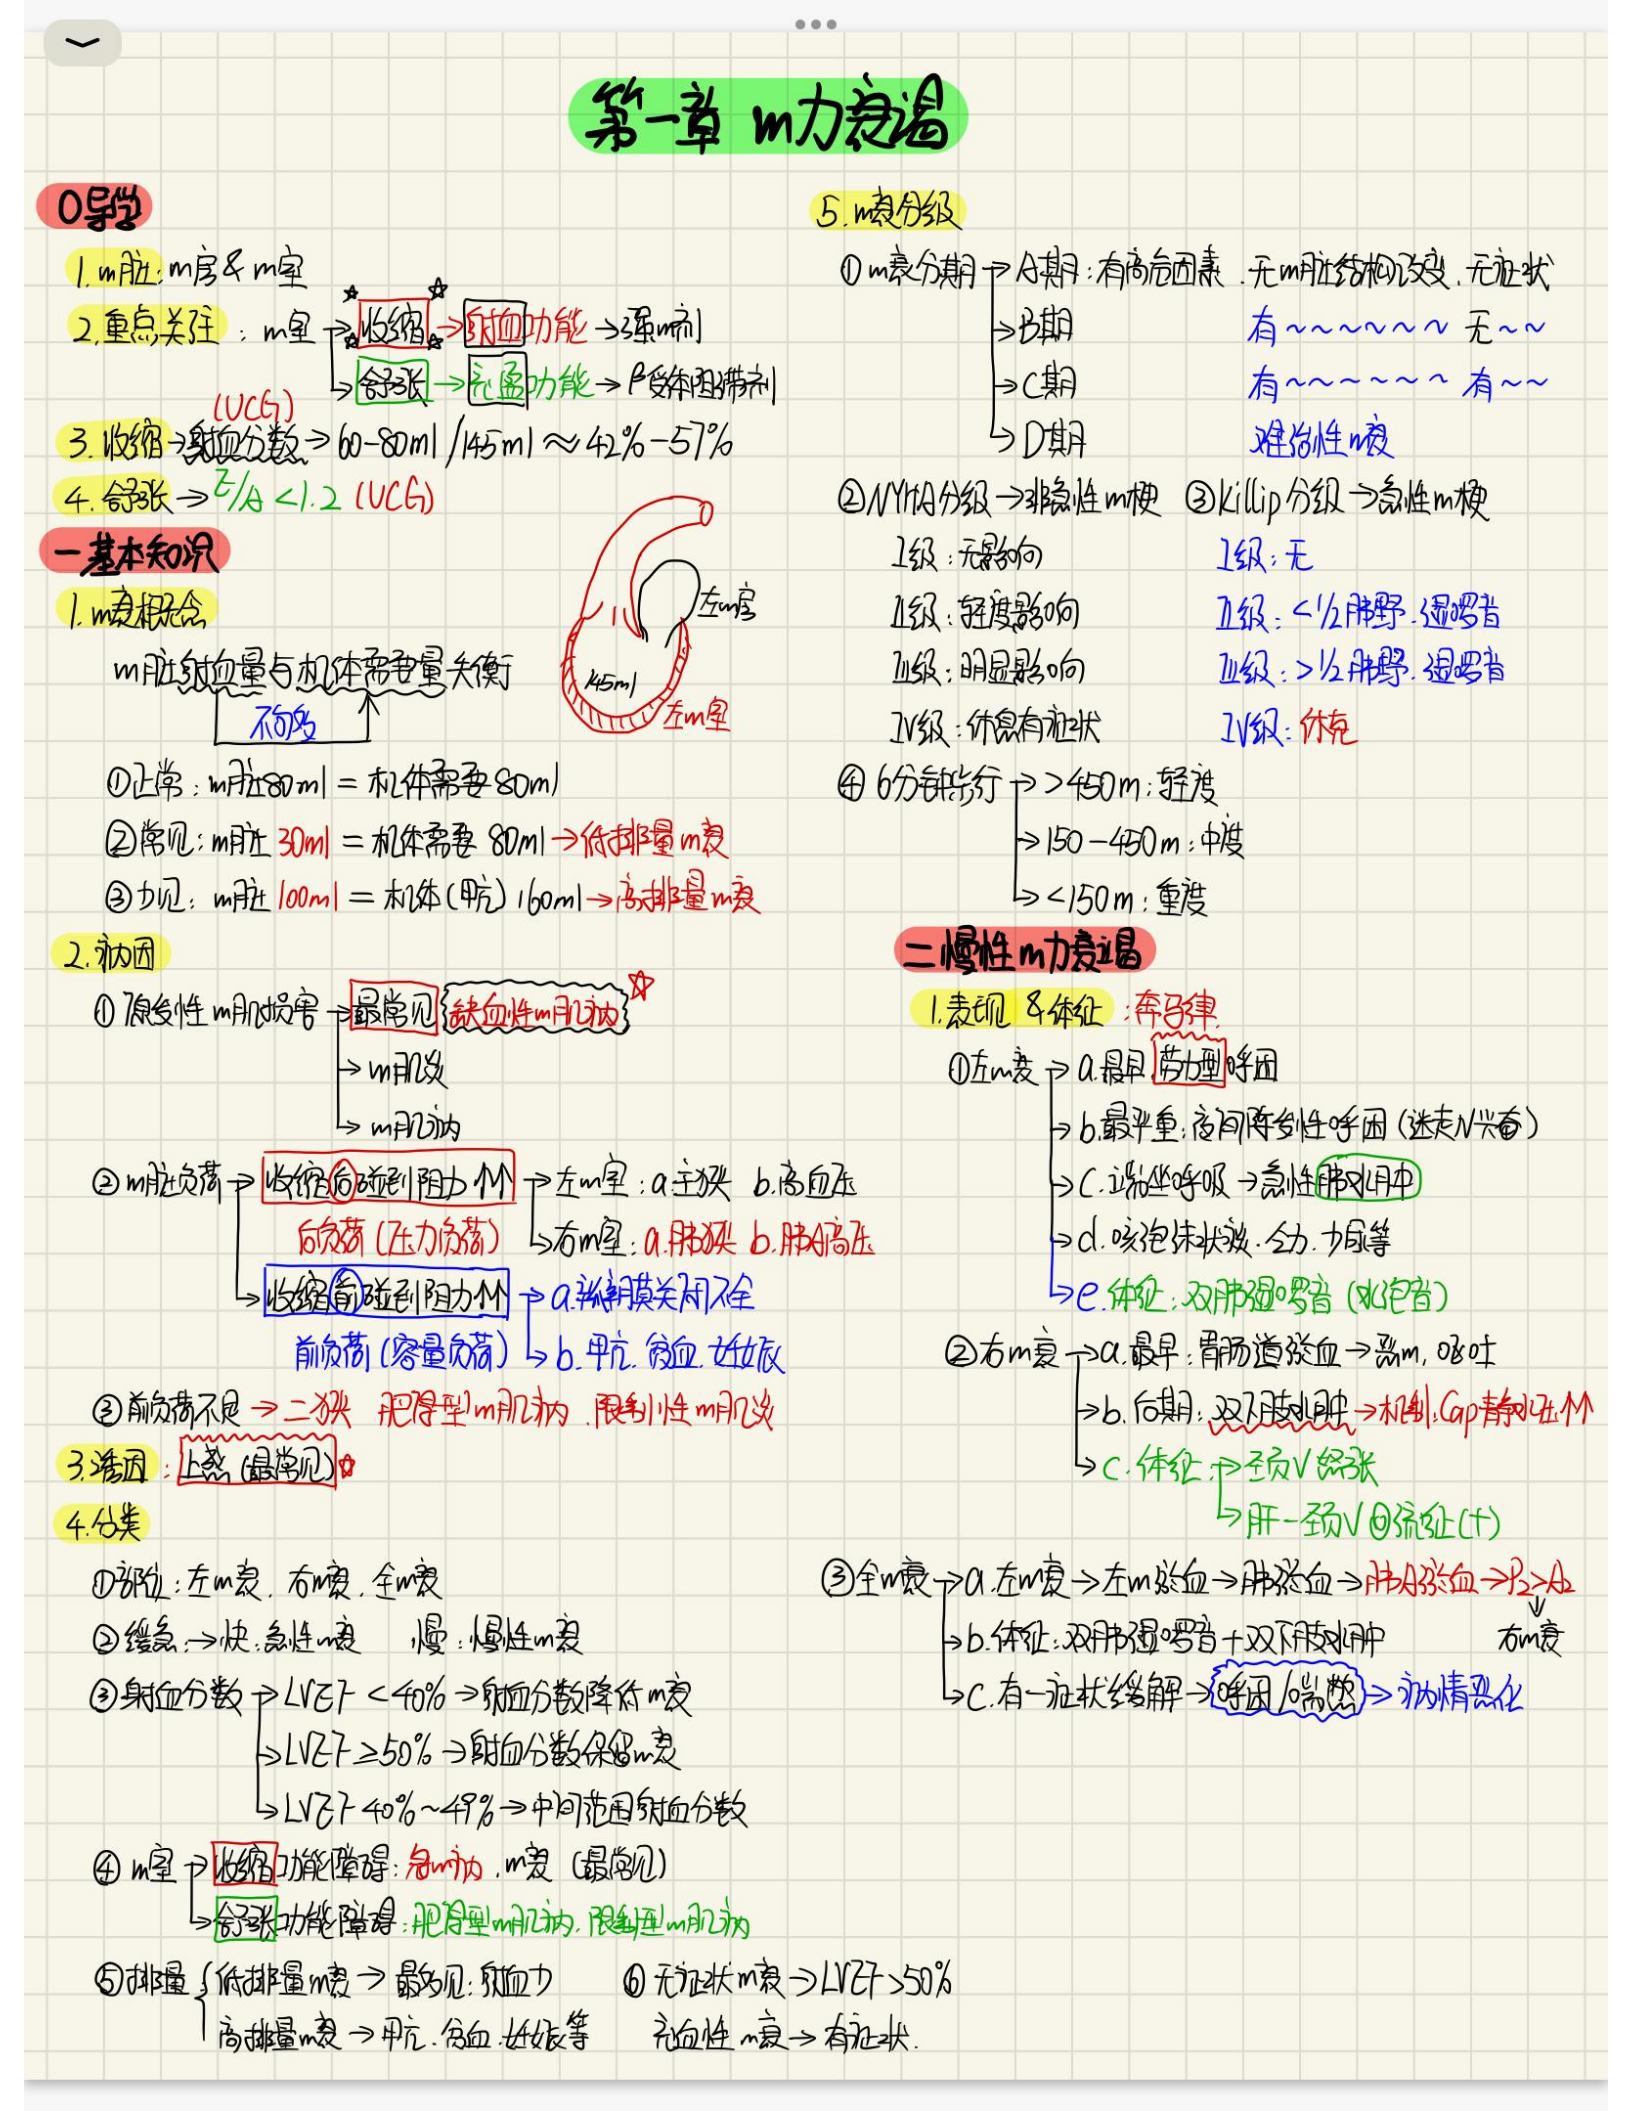 第一章 m力衰竭
0导学
1.m脏：m房&m室
2.重点关注：m室→收缩→射血功能→强m剂
→舒张→充盈功能→β受体阻滞剂
(UCG)
3.收缩→射血分数→60-80ml/145ml≈42%-57%
4.舒张→E/A<1.2 (UCG)
一基本知识
1.m衰概念
m脏射血量与机体需要量失衡
不够多
左m房
145ml
左m室
①正常：m脏80ml=机体需要80ml
②常见：m脏30ml=机体需要80ml→低排量m衰
③少见：m脏100ml=机体(甲亢)160ml→高排量m衰
2.病因
①原发性m肌损害→最常见 缺血性m肌病
→m肌炎
→m肌病
②m脏负荷→收缩后碰到阻力↑↑→左m室：a.主狭 b.高血压
后负荷(压力负荷) →右m室：a.肺狭 b.肺A高压
→收缩前碰到阻力↑↑→a.瓣膜关闭不全
前负荷(容量负荷)→b.甲亢.贫血.妊娠
③前负荷不足→二狭 肥厚型m肌病.限制性m肌炎
3.诱因：上感(最常见)
4.分类
①部位：左m衰.右m衰.全m衰
②缓急→快：急性m衰 慢：慢性m衰
③射血分数→LVEF<40%→射血分数降低m衰
→LVEF≥50%→射血分数保留m衰
→LVEF40%~49%→中间范围射血分数
④m室→收缩功能障碍：冠m病.m衰(最常见)
→舒张功能障碍：肥厚型m肌病.限制型m肌病
⑤排量{低排量m衰→最多见：射血少
高排量m衰→甲亢.贫血.妊娠等
⑥无症状m衰→LVEF>50%
充血性m衰→有症状.
5.m衰分级
①m衰分期→A期：有高危因素.无m脏结构改变.无症状
→B期 有~~~~~~无~~
→C期 有~~~~~~有~~
→D期 难治性m衰
②NYHA分级→非急性m梗 ③Killip分级→急性m梗
I级：无影响 I级：无
II级：轻度影响 II级：<1/2肺野.湿啰音
III级：明显影响 III级：>1/2肺野.湿啰音
IV级：休息有症状 IV级：休克
④6分钟步行→>450m：轻度
→150-450m：中度
→<150m：重度
二慢性m力衰竭
1.表现&体征：奔马律
①左m衰→a.最早 劳力型呼困
→b.最严重：夜间阵发性呼困(迷走N兴奋)
→c.端坐呼吸→急性肺水肿
→d.咳泡沫状痰.乏力.少尿等
→e.体征：双肺湿啰音(水泡音)
②右m衰→a.最早：胃肠道淤血→恶m.呕吐
→b.后期：双下肢水肿→机制：Cap静水压↑↑
→c.体征：→颈V怒张
→肝-颈V回流征(+)
③全m衰→a.左m衰→左m淤血→肺淤血→肺A淤血→P2>A2
→b.体征：双肺湿啰音+双下肢水肿 右m衰
→c.有一症状缓解→呼困/喘憋→病情恶化